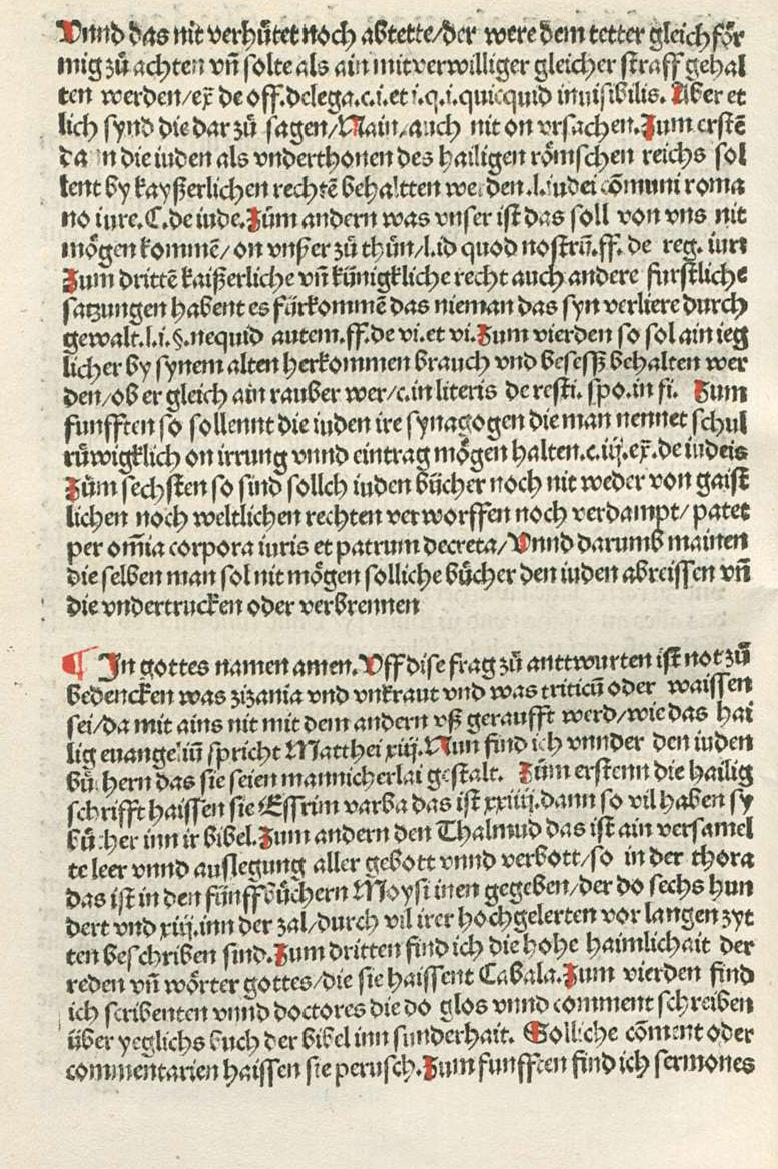 Vnnd das nit verhuͤtet noch abtette/der were dem tetter gleich foͤr
mig zuͦ achten vñ solte als ain mitverwilliger gleicher straff gehal
ten werden/ex̄ de off.delega.c.i.et i.q.i.quicquid inuisibilis. Aber et
lich synd die dar zuͦ sagen/Nain/auch nit on vrsachen.Zum erstē
dann die iuden als vnderthonen des hailigen roͤmschen reichs sol
lent by kayßerlichen rechtē behaltten werden.l.iudei cōmuni roma
no iure.C.de iude.Zuͦm andern was vnser ist das soll von vns nit
moͤgen kommē/on vnßer zuͦ thuͦn/l.id quod nostrū.ff. de reg. iuri
Zum drittē kaißerliche vñ kuͤnigkliche recht auch andere furstliche
satzungen habent es fuͤrkommē das nieman das syn verliere durch
gewalt.l.i.§.nequid autem.ff.de vi.et vi.Zum vierden so sol ain ieg
licher by synem alten herkommen brauch vnd besesß behalten wer
den/ob er gleich ain rauber wer/c.in literis de resti. spo.in fi. Zum
funfften so sollennt die iuden ire synagogen die man nennet schul
ruͤwigklich on irrung vnnd eintrag moͤgen halten.c.iij.ex̄.de iudeis
Zuͦm sechsten so sind sollch iuden buͤcher noch nit weder von gaist
lichen noch weltlichen rechten verworffen noch verdampt/patet
per om̄ia corpora iuris et patrum decreta/Vnnd darumb mainen
die selben man sol nit moͤgen solliche buͤcher den iuden abreissen vñ
die vndertrucken oder verbrennen
¶ In gottes namen amen.Vff dise frag zuͦ anttwurten ist not zuͦ
bedencken was zizania vnd vnkraut vnd was triticū oder waissen
sei/da mit ains nit mit dem andern vß geraufft werd/wie das hai
lig euangeliū spricht Matthei xiij.Nun find ich vnnder den iuden
buͤchern das sie seien mannicherlai gestalt. Zuͦm erstenn die hailig
schrifft haissen sie Essrim varba das ist xxiiij.dann so vil haben sy
buͤcher inn ir bibel.Zum andern den Thalmud das ist ain versamel
te leer vnnd auslegung aller gebott vnnd verbott/so in der thora
das ist in den fuͤnff buͤchern Moysi inen gegeben/der do sechs hun
dert vnd xiij.inn der zal/durch vil irer hochgelerten vor langen zyt
ten beschriben sind.Zum dritten find ich die hohe haimlichait der
reden vñ woͤrter gottes/die sie haissent Cabala.Zum vierden find
ich scribenten vnnd doctores die do glos vnnd comment schreiben
uͤber yeglichs buch der bibel inn sunderhait. Solliche cōment oder
commentarien haissen sie perusch.Zum funfften find ich sermones